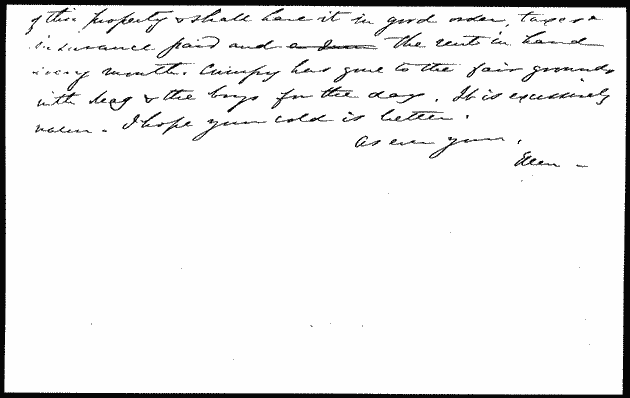 of this property & shall have it in good order, taxes &
insurance paid and the rents in hand
every month. Crimpy has gone to the fair grounds
with Meg & the boys for the day. It is excessively
warm. I hope your cold is better.
As ever yours,
Ellen -